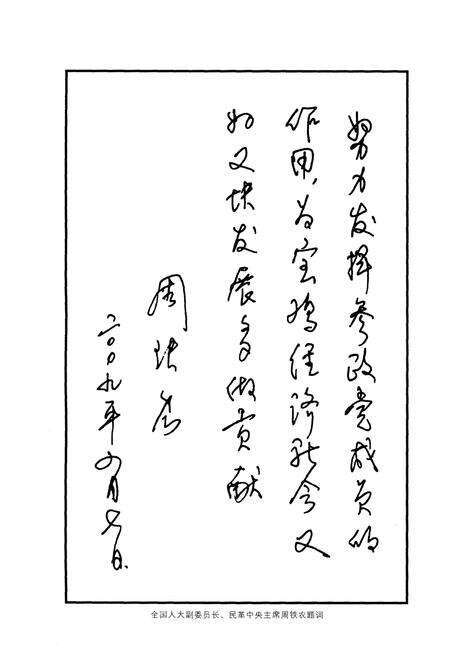 努力发挥参政党成员的
作用，为宝鸡经济社会又
好又快发展多做贡献
周铁农
二〇〇九年八月七日
全国人大副委员长、民革中央主席周铁农题词